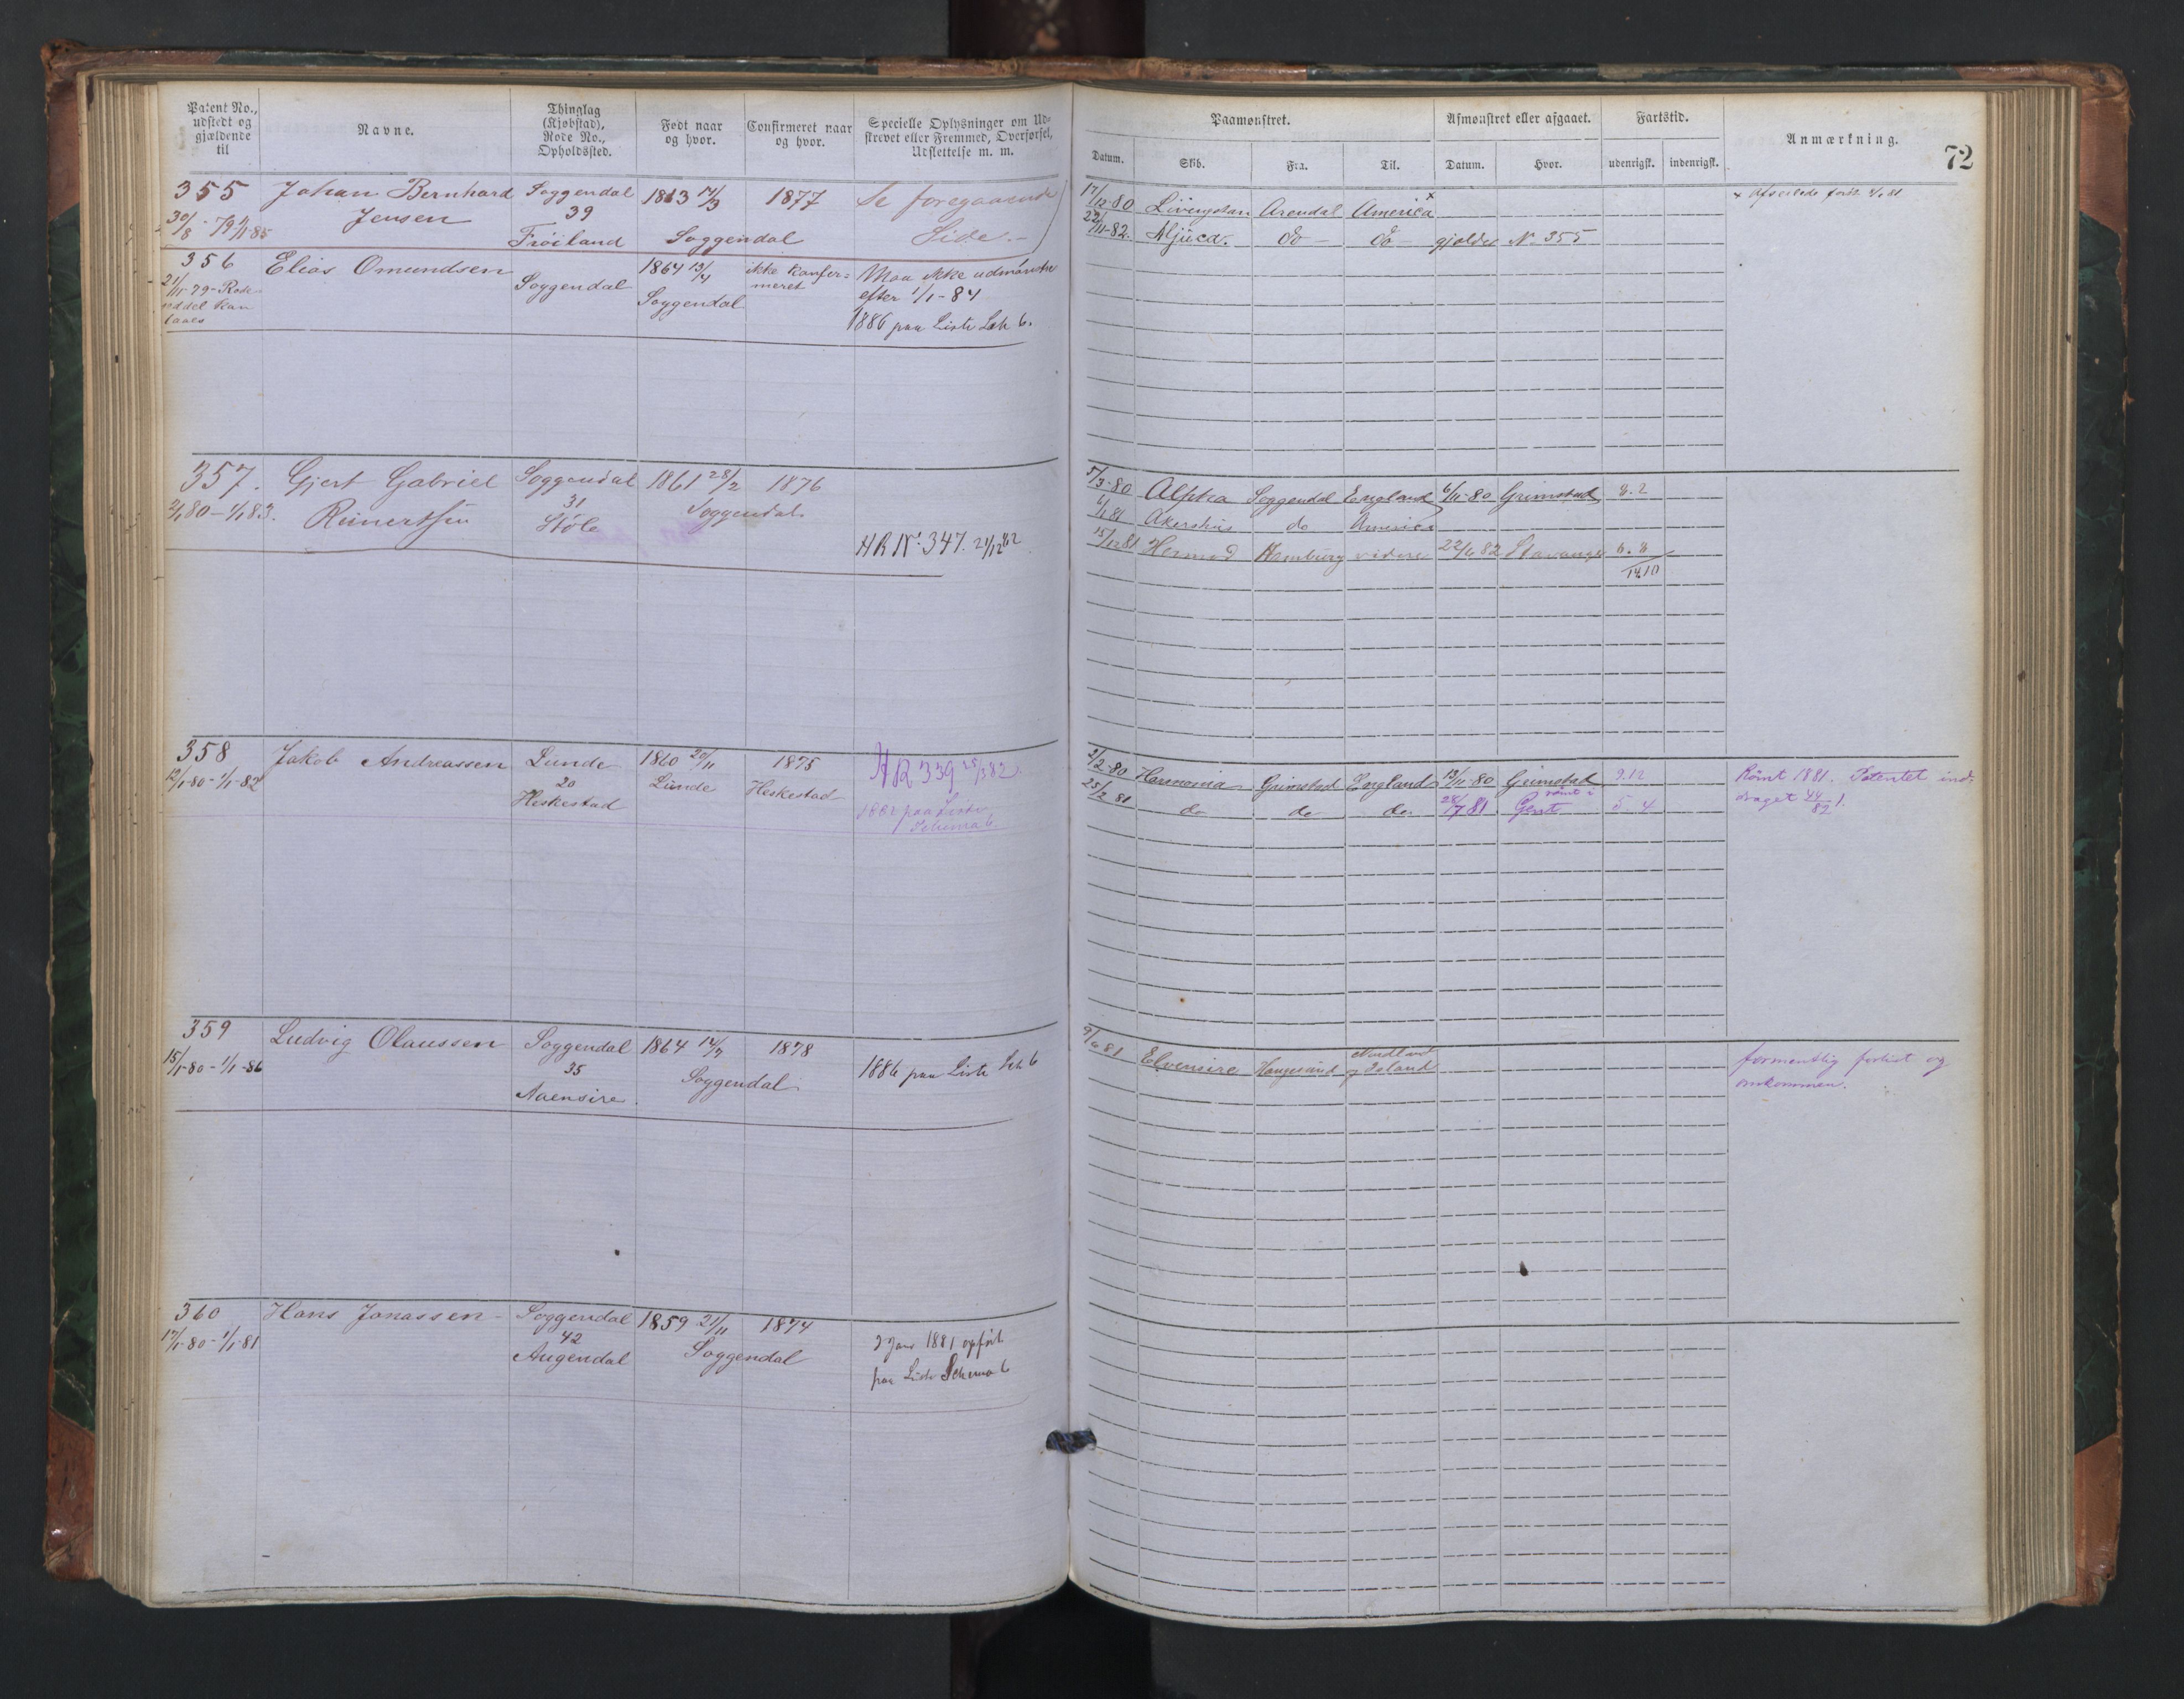 Patent No., udstedt og gjældende til
Navne.
Thinglag (Kjøbstad), Rode No., Opholdssted.
Født naar og hvor.
Confirmeret naar og hvor.
Specielle Oplysninger om Udskrevet eller Fremmed, Overførsel, Udslettelse m. m.
Paamønstret.
Afmønstret eller afgaaet.
Fartstid.
Anmærkning.
72
Datum.
Skib.
Fra.
Til.
Datum.
Hvor.
udenrigsk.
indenrigsk.
355 Johan Bernhard Soggendal 1863 17/3 1877 Se foregaaende
30/8 - 79 1/1-85 Jensen 39 Soggendal Side.-
Frøiland
17/12-80 Livingstan Arendal America x
x Afseilede
22/11-82. Mjuca. do - do - gjelder No 355
356 Elias Omundsen Soggendal 1864 13/4 ikke konfer=
21/11-79-Rode meret
Soggendal
Maa ikke udmønstre
efter 1/1-84
1886 paa Liste Sch 6.
357. Gjert Gabriel Soggendal 1861 28/2 1876
Reinertsen 31 Soggendal.
Støle
HR No. 347. 21/12 82
5/3-80 Alpha Soggendal England 6/11-80 Grimstad 8.2
Akershus do America
15/12 81 Hermod Hamburg videre 22/6 82 Stavanger 6.8
14.10
358 Jakob Andreassen Lunde 1860 20/11 1875
12/1-80 - 1/1-82 20 Lunde Heskestad
Heskestad
HR 339 25/3 82.
1882 paa Liste
Schema 6.
2/2-80 Harmonia Grimstad England 13/11-80 Grimstad 9.12
25/2 81 do do do. 28/7 81 rømt i Gent 5.4
Rømt 1881. Patentet ind-
draget 44/82 1.
359 Ludvig Olaussen Soggendal 1864 14/7 1878
15/1-80 - 1/1-86 35 Soggendal.
Aaensire.
1886 paa Liste Sch 6
9/6 81 Elvensire Haugesund Nordland
og Island
formentlig forlist og
omkommen.
360 Hans Jonassen - Soggendal 1859 21/11 1874
17/1-80 - 1/1-81 42 Soggendal
Augendal
I Janr 1881 opført
paa Liste Schema 6